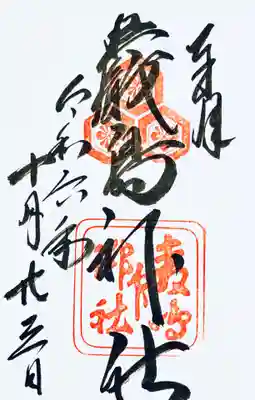 奉拝
嚴島神社
嚴島神社
令和六年
十月廿三日